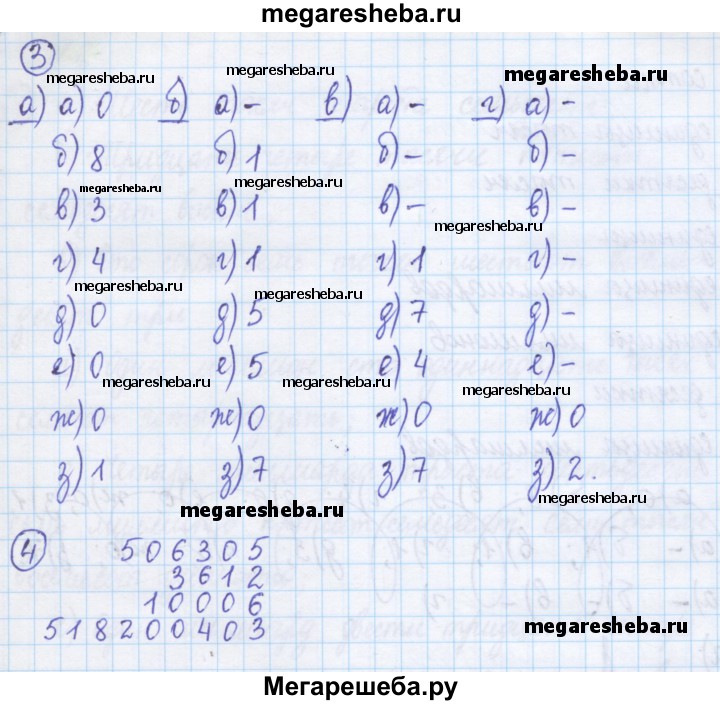 megaresheba.ru
3
megaresheba.ru megaresheba.ru megaresheba.ru
а) а) 0 б) а) – в) а) – г) а) –
megaresheba.ru megaresheba.ru
б) 8 б) 1 б) – б) –
megaresheba.ru megaresheba.ru megaresheba.ru
в) 3 в) 1 в) – в) –
megaresheba.ru
г) 4 г) 1 г) 1 г) –
megaresheba.ru megaresheba.ru
д) 0 д) 5 д) 7 д) –
е) 0 е) 5 е) 4 е) –
megaresheba.ru megaresheba.ru megaresheba.ru
ж) 0 ж) 0 ж) 0 ж) 0
з) 1 з) 7 з) 7 з) 2.
megaresheba.ru megaresheba.ru
4 506305
3612
10006
518200403 megaresheba.ru
Мегарешеба.ру